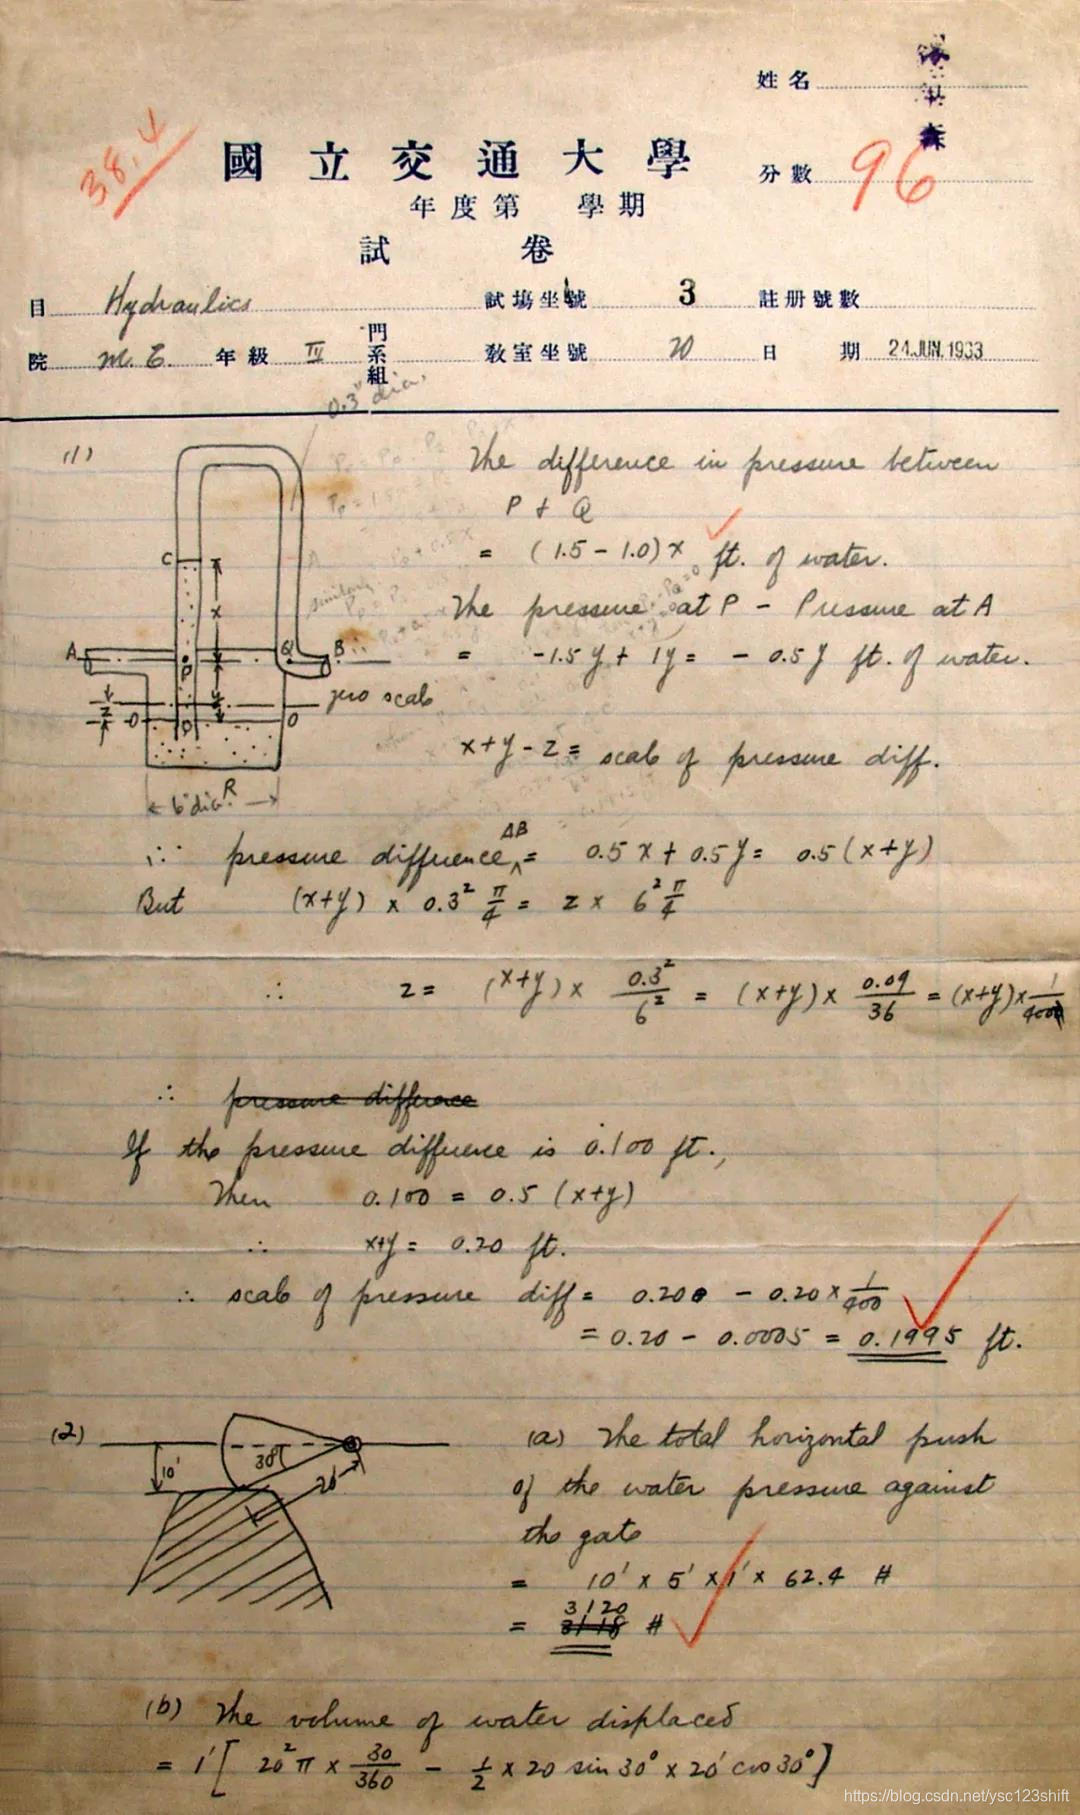 姓名
38.4
國立交通大學
分數 96
年度第 學期
試 卷
目 Hydraulics 試場坐號 3 註册號數
院 M. E. 年級 IV 門系組 教室坐號 20 日期 24.JUN.1933
0.3" dia.
(1)
The difference in pressure between
P + Q
= (1.5 - 1.0) x ft. of water.
The pressure at P - Pressure at A
= -1.5 y + 1y = - 0.5 y ft. of water.
C
x
A P Q B
y
zero scale
z
O D O
6" dia. R
x+y-z = scale of pressure diff.
∴ pressure difference AB = 0.5 x + 0.5 y = 0.5 (x+y)
But (x+y) × 0.3² π/4 = z × 6² π/4
∴ z = (x+y) × 0.3²/6² = (x+y) × 0.09/36 = (x+y) × 1/400
∴ pressure difference
If the pressure difference is 0.100 ft.,
Then 0.100 = 0.5 (x+y)
∴ x+y = 0.20 ft.
∴ scale of pressure diff = 0.200 - 0.20 × 1/400
= 0.20 - 0.0005 = 0.1995 ft.
(2)
10'
30°
20'
(a) The total horizontal push
of the water pressure against
the gate
= 10' × 5' × 1' × 62.4 #
= 3120 #
3118
(b) The volume of water displaced
= 1' [ 20² π × 30/360 - 1/2 × 20 sin 30° × 20' cos 30° ]
https://blog.csdn.net/ysc123shift